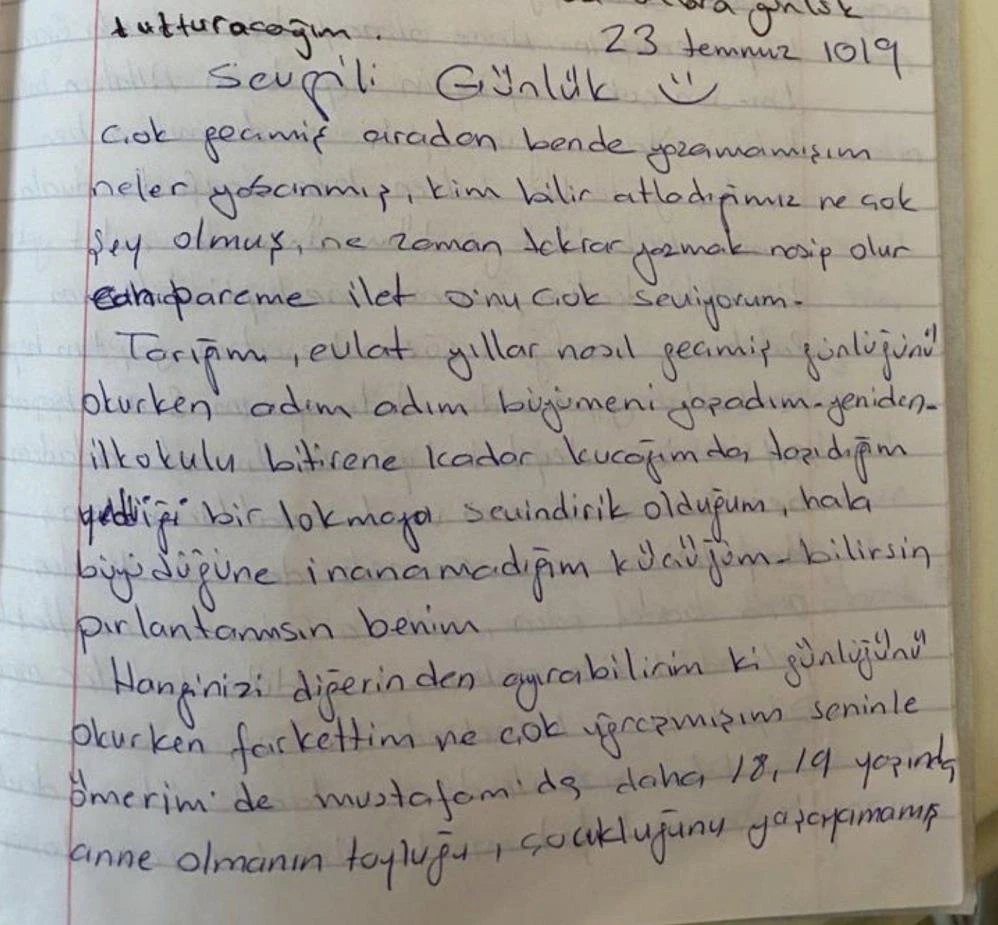 günlük
tutturacağım.
23 temmuz 1019
Sevgili Günlük
Çok geçmiş aradan bende yazamamışım
neler yaşanmış, kim bilir atladığımız ne çok
şey olmuş, ne zaman tekrar yazmak nasip olur
pareme ilet o'nu çok seviyorum.
Tarığım, evlat yıllar nasıl geçmiş günlüğünü
okurken adım adım büyümeni yaşadım-yeniden-
ilkokulu bitirene kadar kucağımda taşıdığım
yediği bir lokmaya sevindirik olduğum, hala
büyüdüğüne inanamadığım küçüğüm-bilirsin
pırlantamsın benim
Hanginizi diğerinden ayırabilirim ki günlüğünü
okurken farkettim ne çok uğraşmışım seninle
ömerim'de mustafam'da daha 18, 19 yaşında
anne olmanın toyluğu, çocukluğunu yaşayamamış